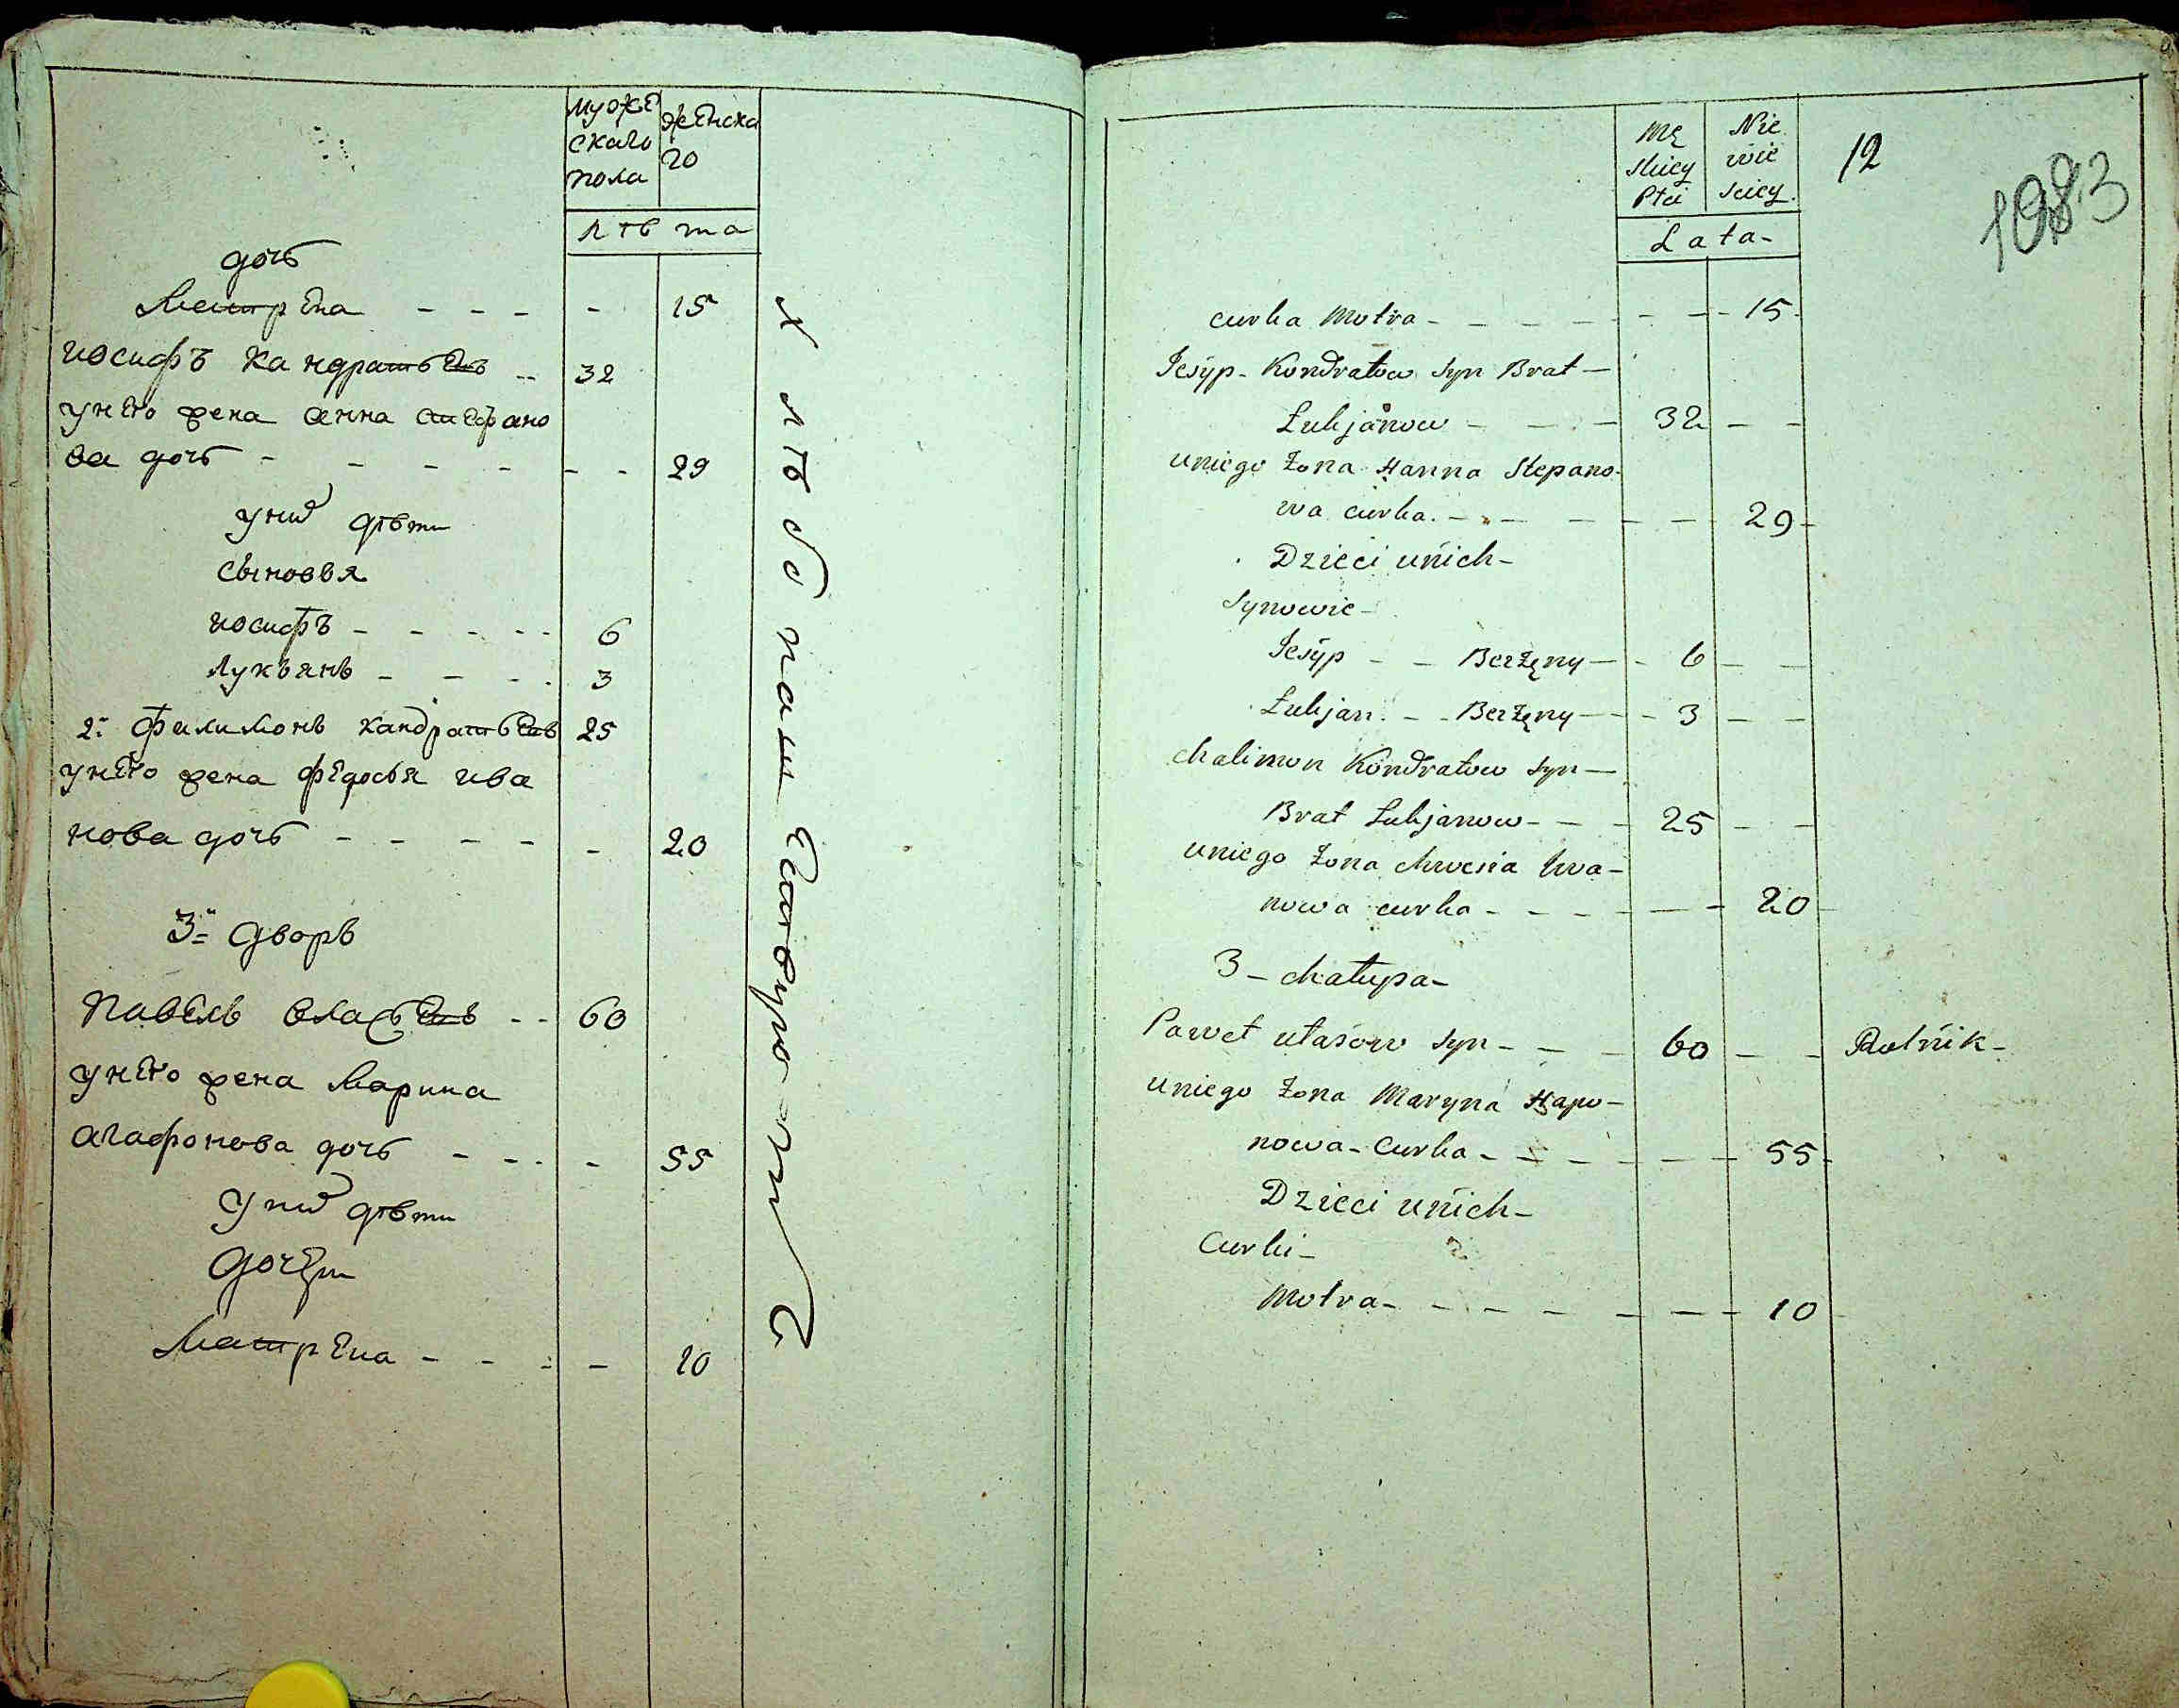 муже
скаго
пола
женска
го
лѣта
дочь
Матрена - - - - 15
иосифъ кандратьевъ - 32
унего жена анна стефано
ва дочь - - - - - - 29
уних дѣти
сыновья
иосифъ - - - - - 6
лукьянъ - - - - 3
2. филимонъ кандратьевъ 25
унего жена федосья ива
нова дочь - - - - - 20
3й дворъ
павелъ власьевъ - - 60
унего жена Марина
агафонова дочь - - - - 55
уних дѣти
дочери
Матрена - - - - 10
хлѣбопашествуютъ
Mę
skiey
Płci
Nie
wie
sciey
12
1083
Lata-
curka Motra - - - - - - - 15
Jesyp - Kondratow syn Brat -
Łukjanow - - - 32 - -
uniego Żona Hanna Stepano-
wa curka - - - - - 29 -
Dzieci unich -
Synowie -
Jesyp - - Berżęny - - 6 - -
Łukjan - - Berżęny - - 3 - -
Chalimon Kondratow syn -
Brat Łukjanow - - - 25 - -
uniego Żona Chwesia Iwa-
nowa curka - - - - - 20 -
3 - chałupa -
Paweł ułasow syn - - - 60 - - Rolnik -
uniego Żona Maryna Hapo-
nowa - Curka - - - - - 55 -
Dzieci unich -
Curki -
Motra - - - - - - - 10